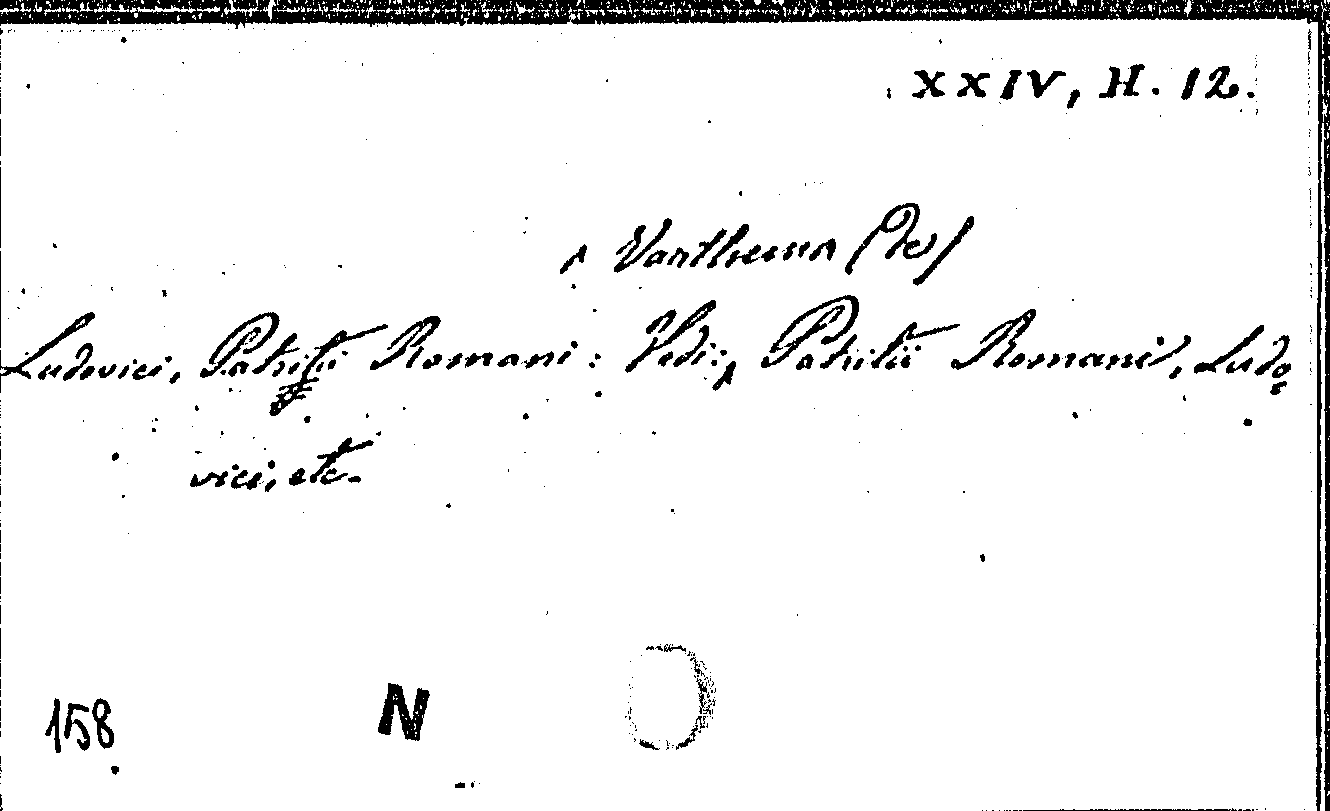 XXIV, H. 12.
^ Varthema (De)
Ludovici, Patritii Romani: Vedi:^ Patritii Romani, Ludo
vici, etc.
158 N